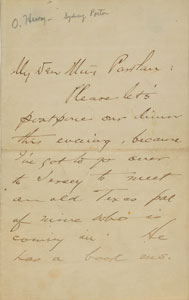 O. Henry - Sydney Porter
My Dear Miss Partlan:
Please let's
postpone our dinner
this evening, because
I've got to go over
to Jersey to meet
an old Texas pal
of mine who is
coming in. He
has a good